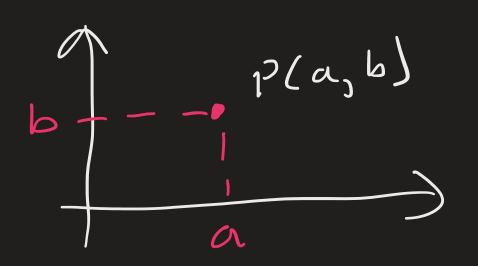 P(a,b)
b
a